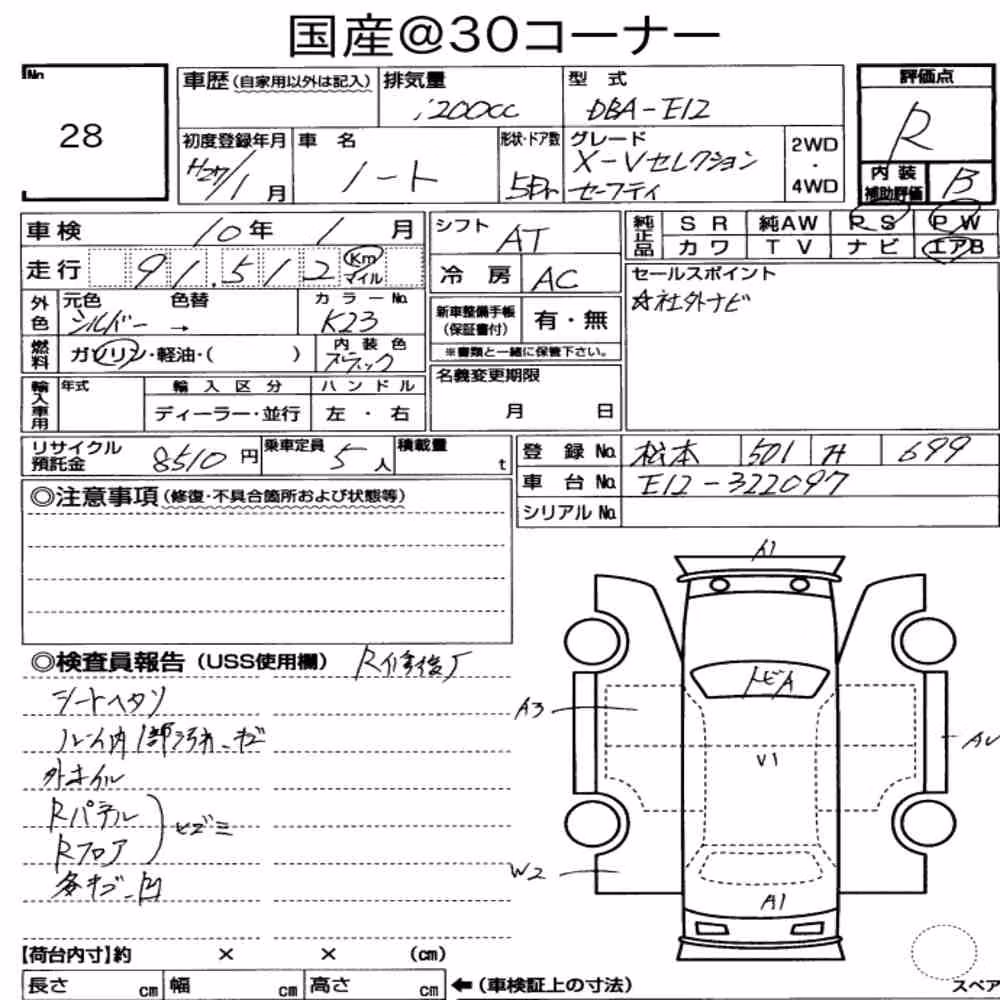 国産@30コーナー
No 28
車歴 (自家用以外は記入) 排気量 1200cc 型式 DBA-E12
評価点 R
初度登録年月 H27/1月 車名 ノート 形状・ドア数 5Dr グレード X-Vセレクション セーフティ 2WD・4WD
内装補助評価 B
車検 10年 1月
走行 91,512 Km マイル
外色 元色 シルバー → 色替 カラーNo. K23
燃料 ガソリン・軽油・( ) 内装色 ブラック
輸入車用 年式 輸入区分 ディーラー・並行 ハンドル 左・右
シフト AT
冷房 AC
新車整備手帳 (保証書付) 有・無
※書類と一緒に保管下さい。
名義変更期限 月 日
純正品 SR 純AW RS PW
カワ TV ナビ エアB
セールスポイント
☆社外ナビ
リサイクル預託金 8510円 乗車定員 5人 積載量 t
登録No. 松本 501 サ 699
車台No. E12-322097
シリアルNo.
◎注意事項 (修復・不具合箇所および状態等)
◎検査員報告 (USS使用欄) R修復了
シートヘタリ
ルーム内1部汚れ、キズ
外ホイル
Rパネル
Rフロア
ヒズミ
多キズ、凹
A1
トビA
A3
V1
W2
A1
【荷台内寸】約 × × (cm)
長さ cm 幅 cm 高さ cm ←(車検証上の寸法)
スペア